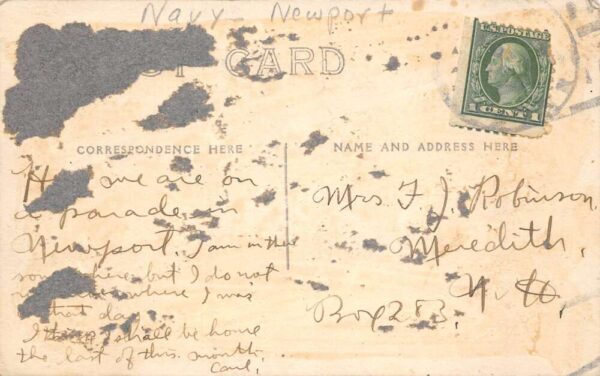 Navy - Newport
ST CARD
U.S. POSTAGE
1 CENT 1
CORRESPONDENCE HERE
we are on
a parade in
Newport. I am in the
some where but I do not
where I was
that day.
I think I shall be home
the last of this month.
Carl,
NAME AND ADDRESS HERE
Mrs F J. Robinson,
Meredith,
Box 283, N. H.